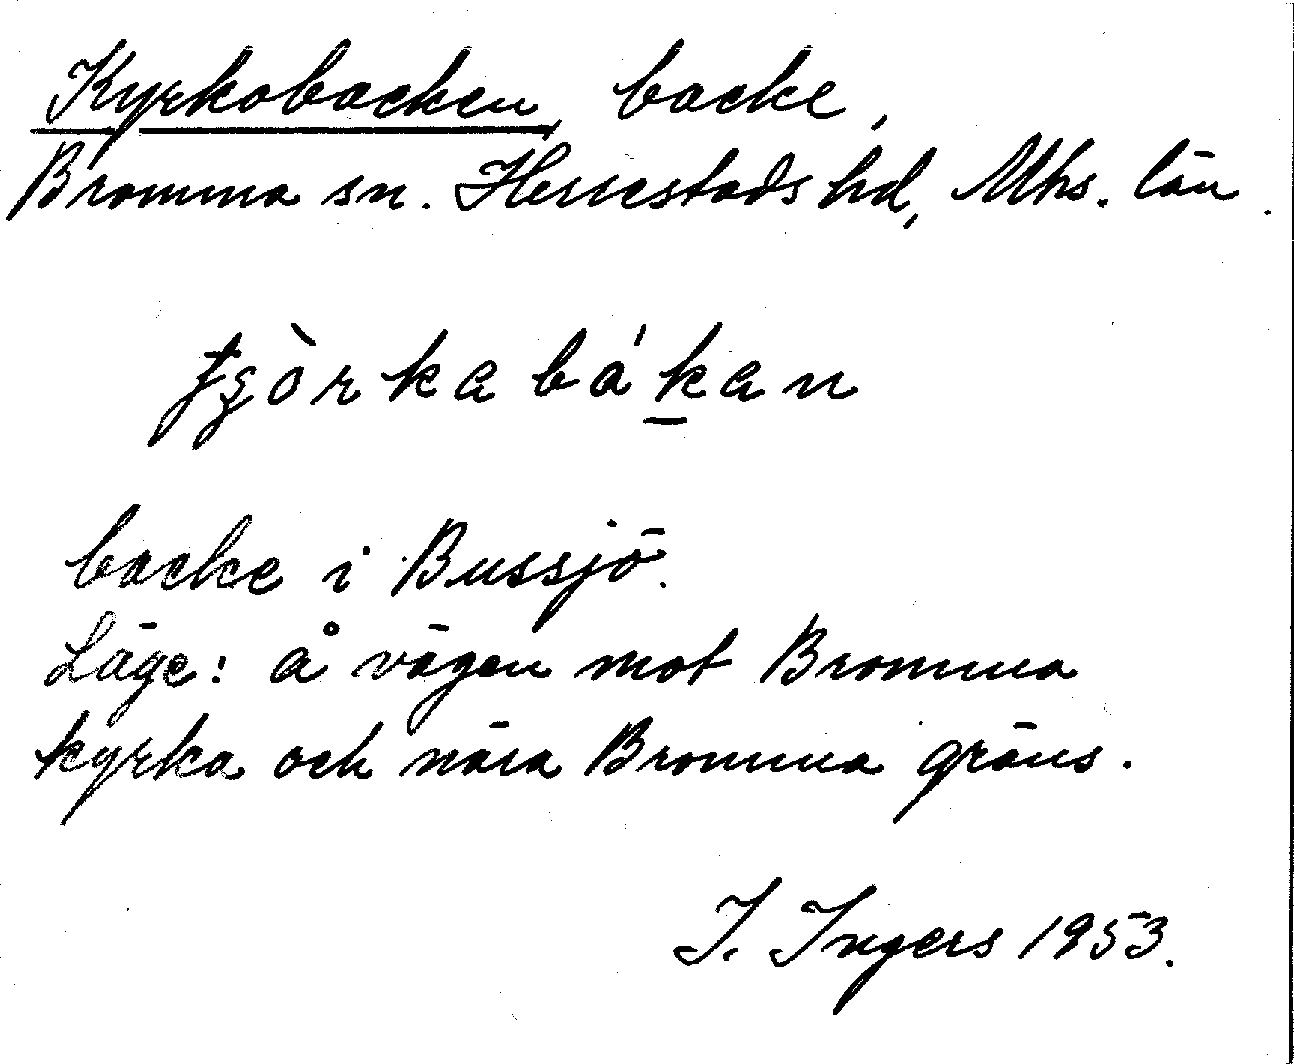 Kyrkobacken, backe,
Bromma sn. Herrestads hd, Mhs. län.
backe i Bussjö.
Läge: å vägen mot Bromma
kyrka och nära Bromma gräns.
I. Ingers 1953.